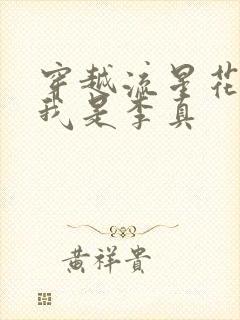 穿越流星花
我是李真
黄祥贵